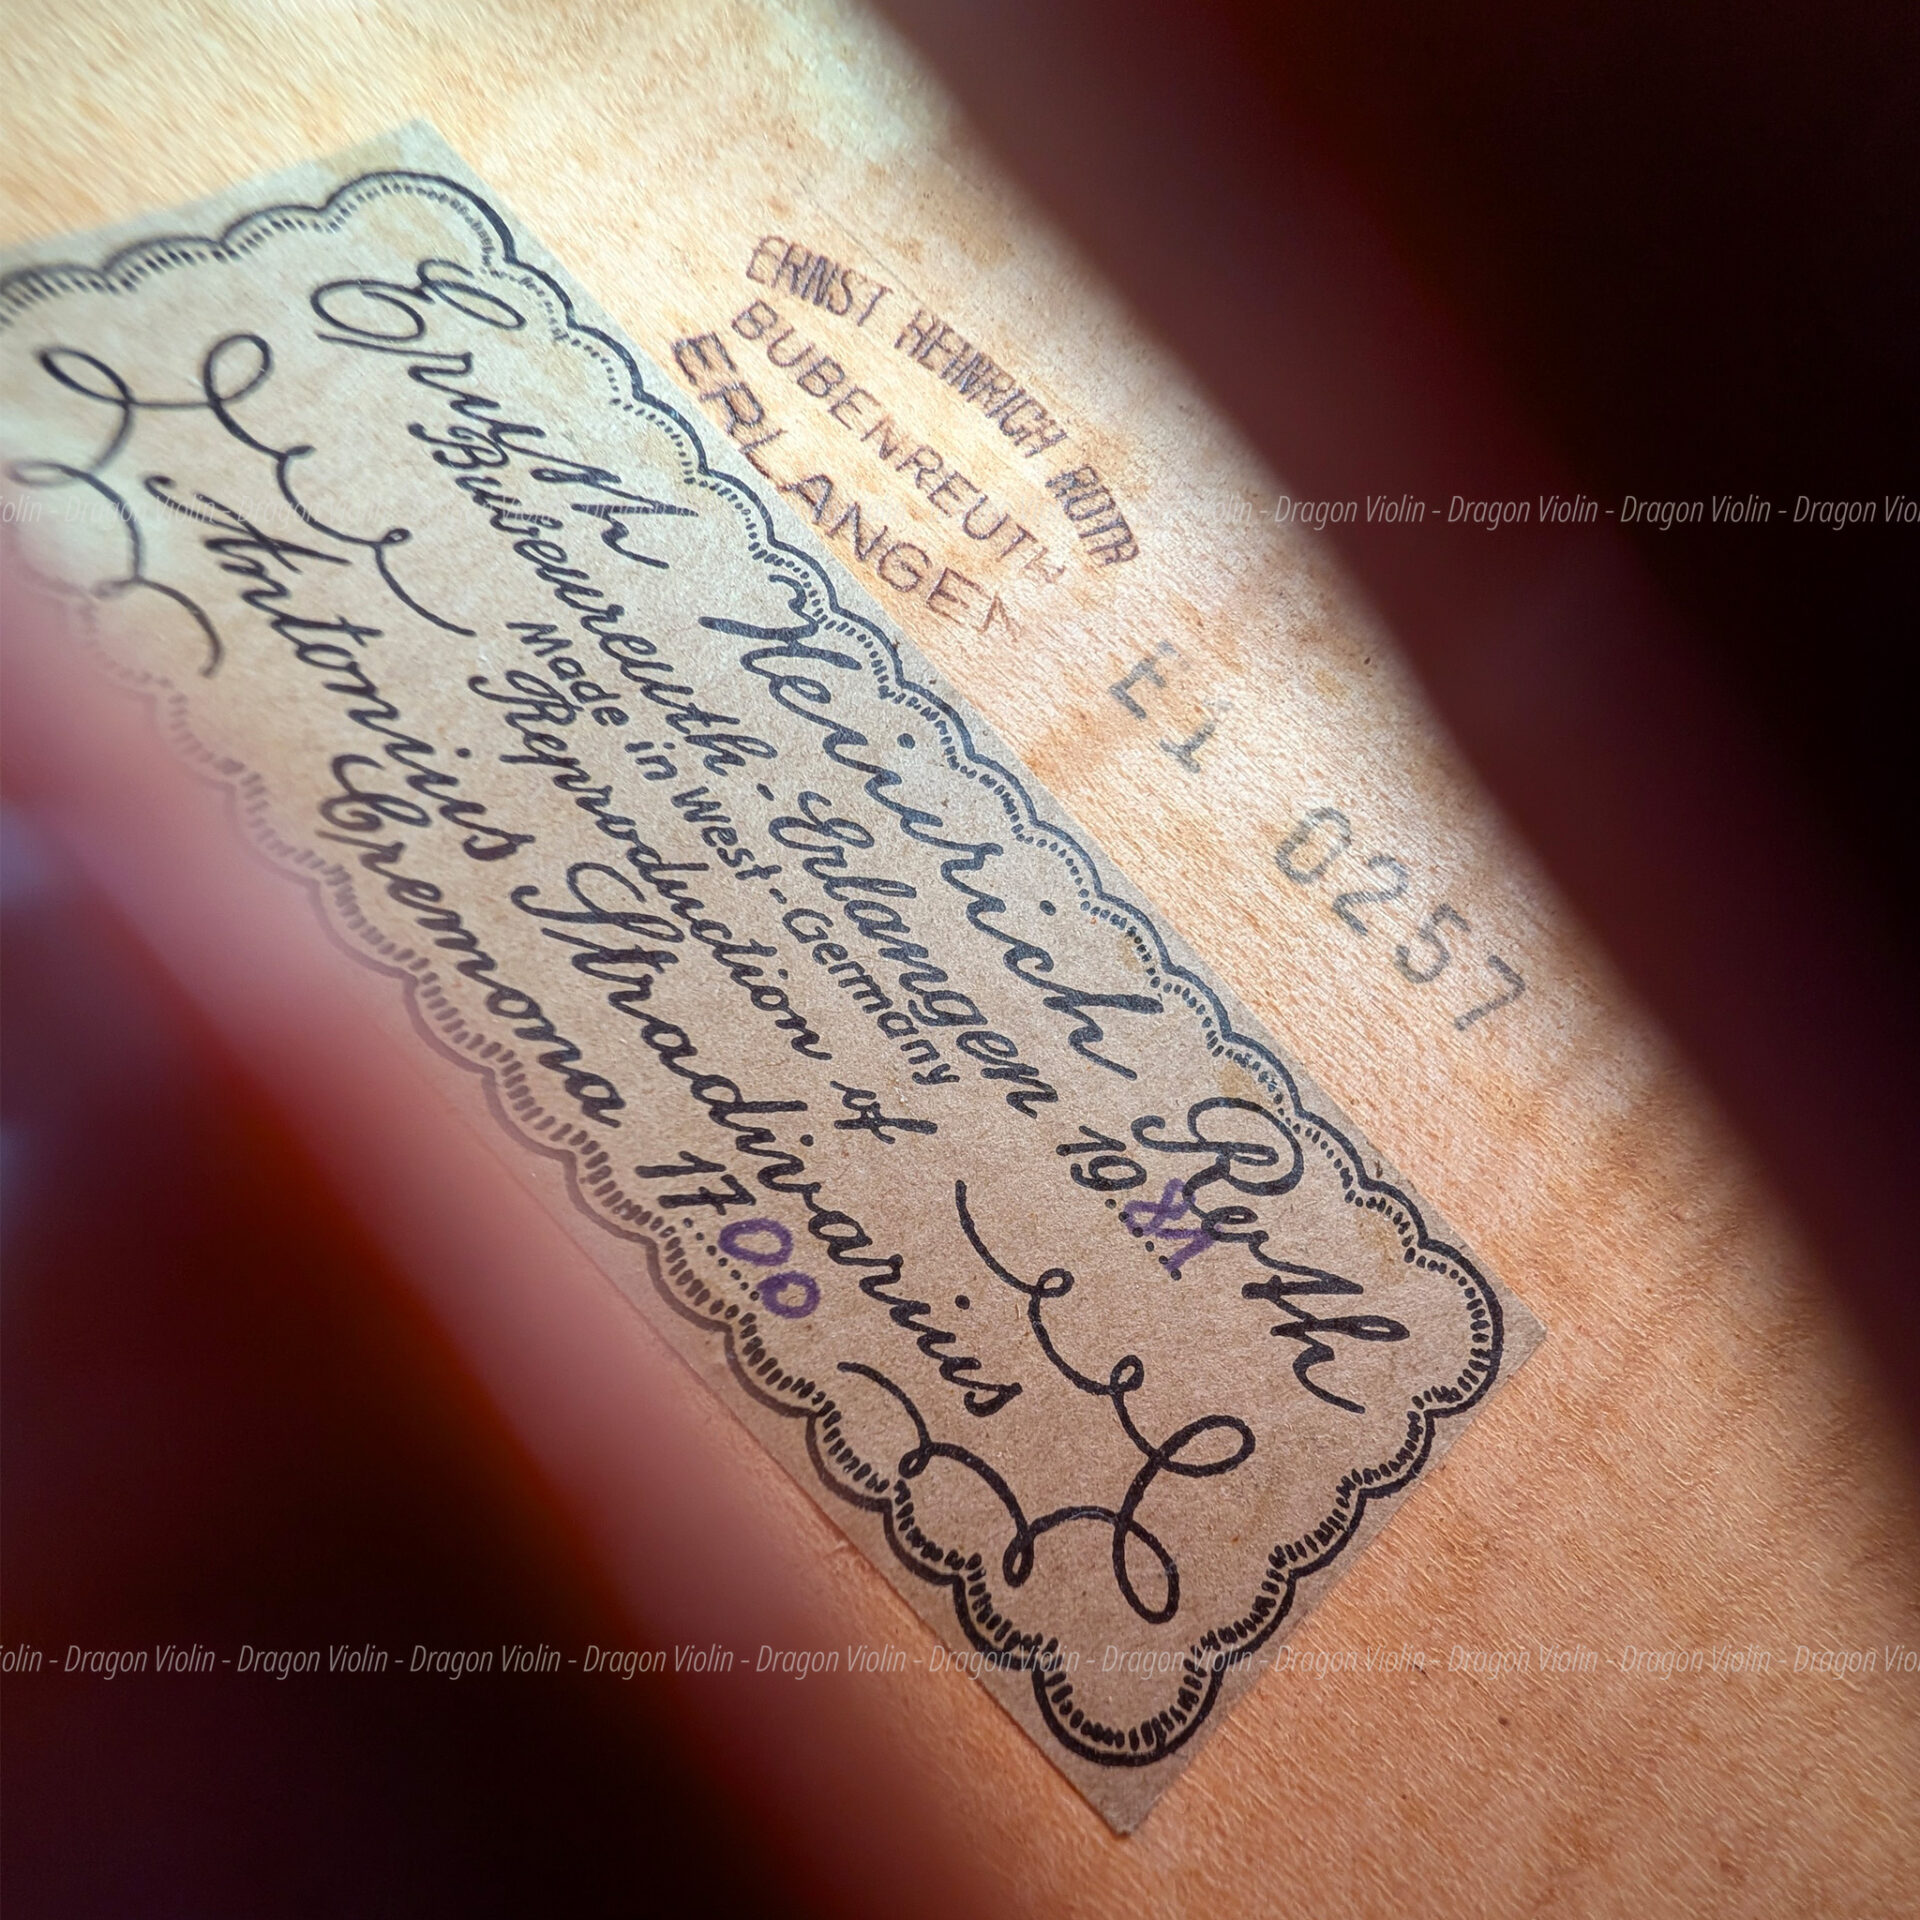 Ernst Heinrich Roth
Bubenreuth-Erlangen 1981
Made in West-Germany
Reproduction of
Antonius Stradivarius
Cremona 1700
ERNST HEINRICH ROTH
BUBENREUTH
ERLANGEN
E1 0257
Dragon Violin - Dragon Violin - Dragon Violin - Dragon Violin
Dragon Violin - Dragon Violin - Dragon Violin - Dragon Violin - Dragon Violin - Dragon Violin - Dragon Violin - Dragon Violin - Dragon Violin - Dragon Violin - Dragon Violin